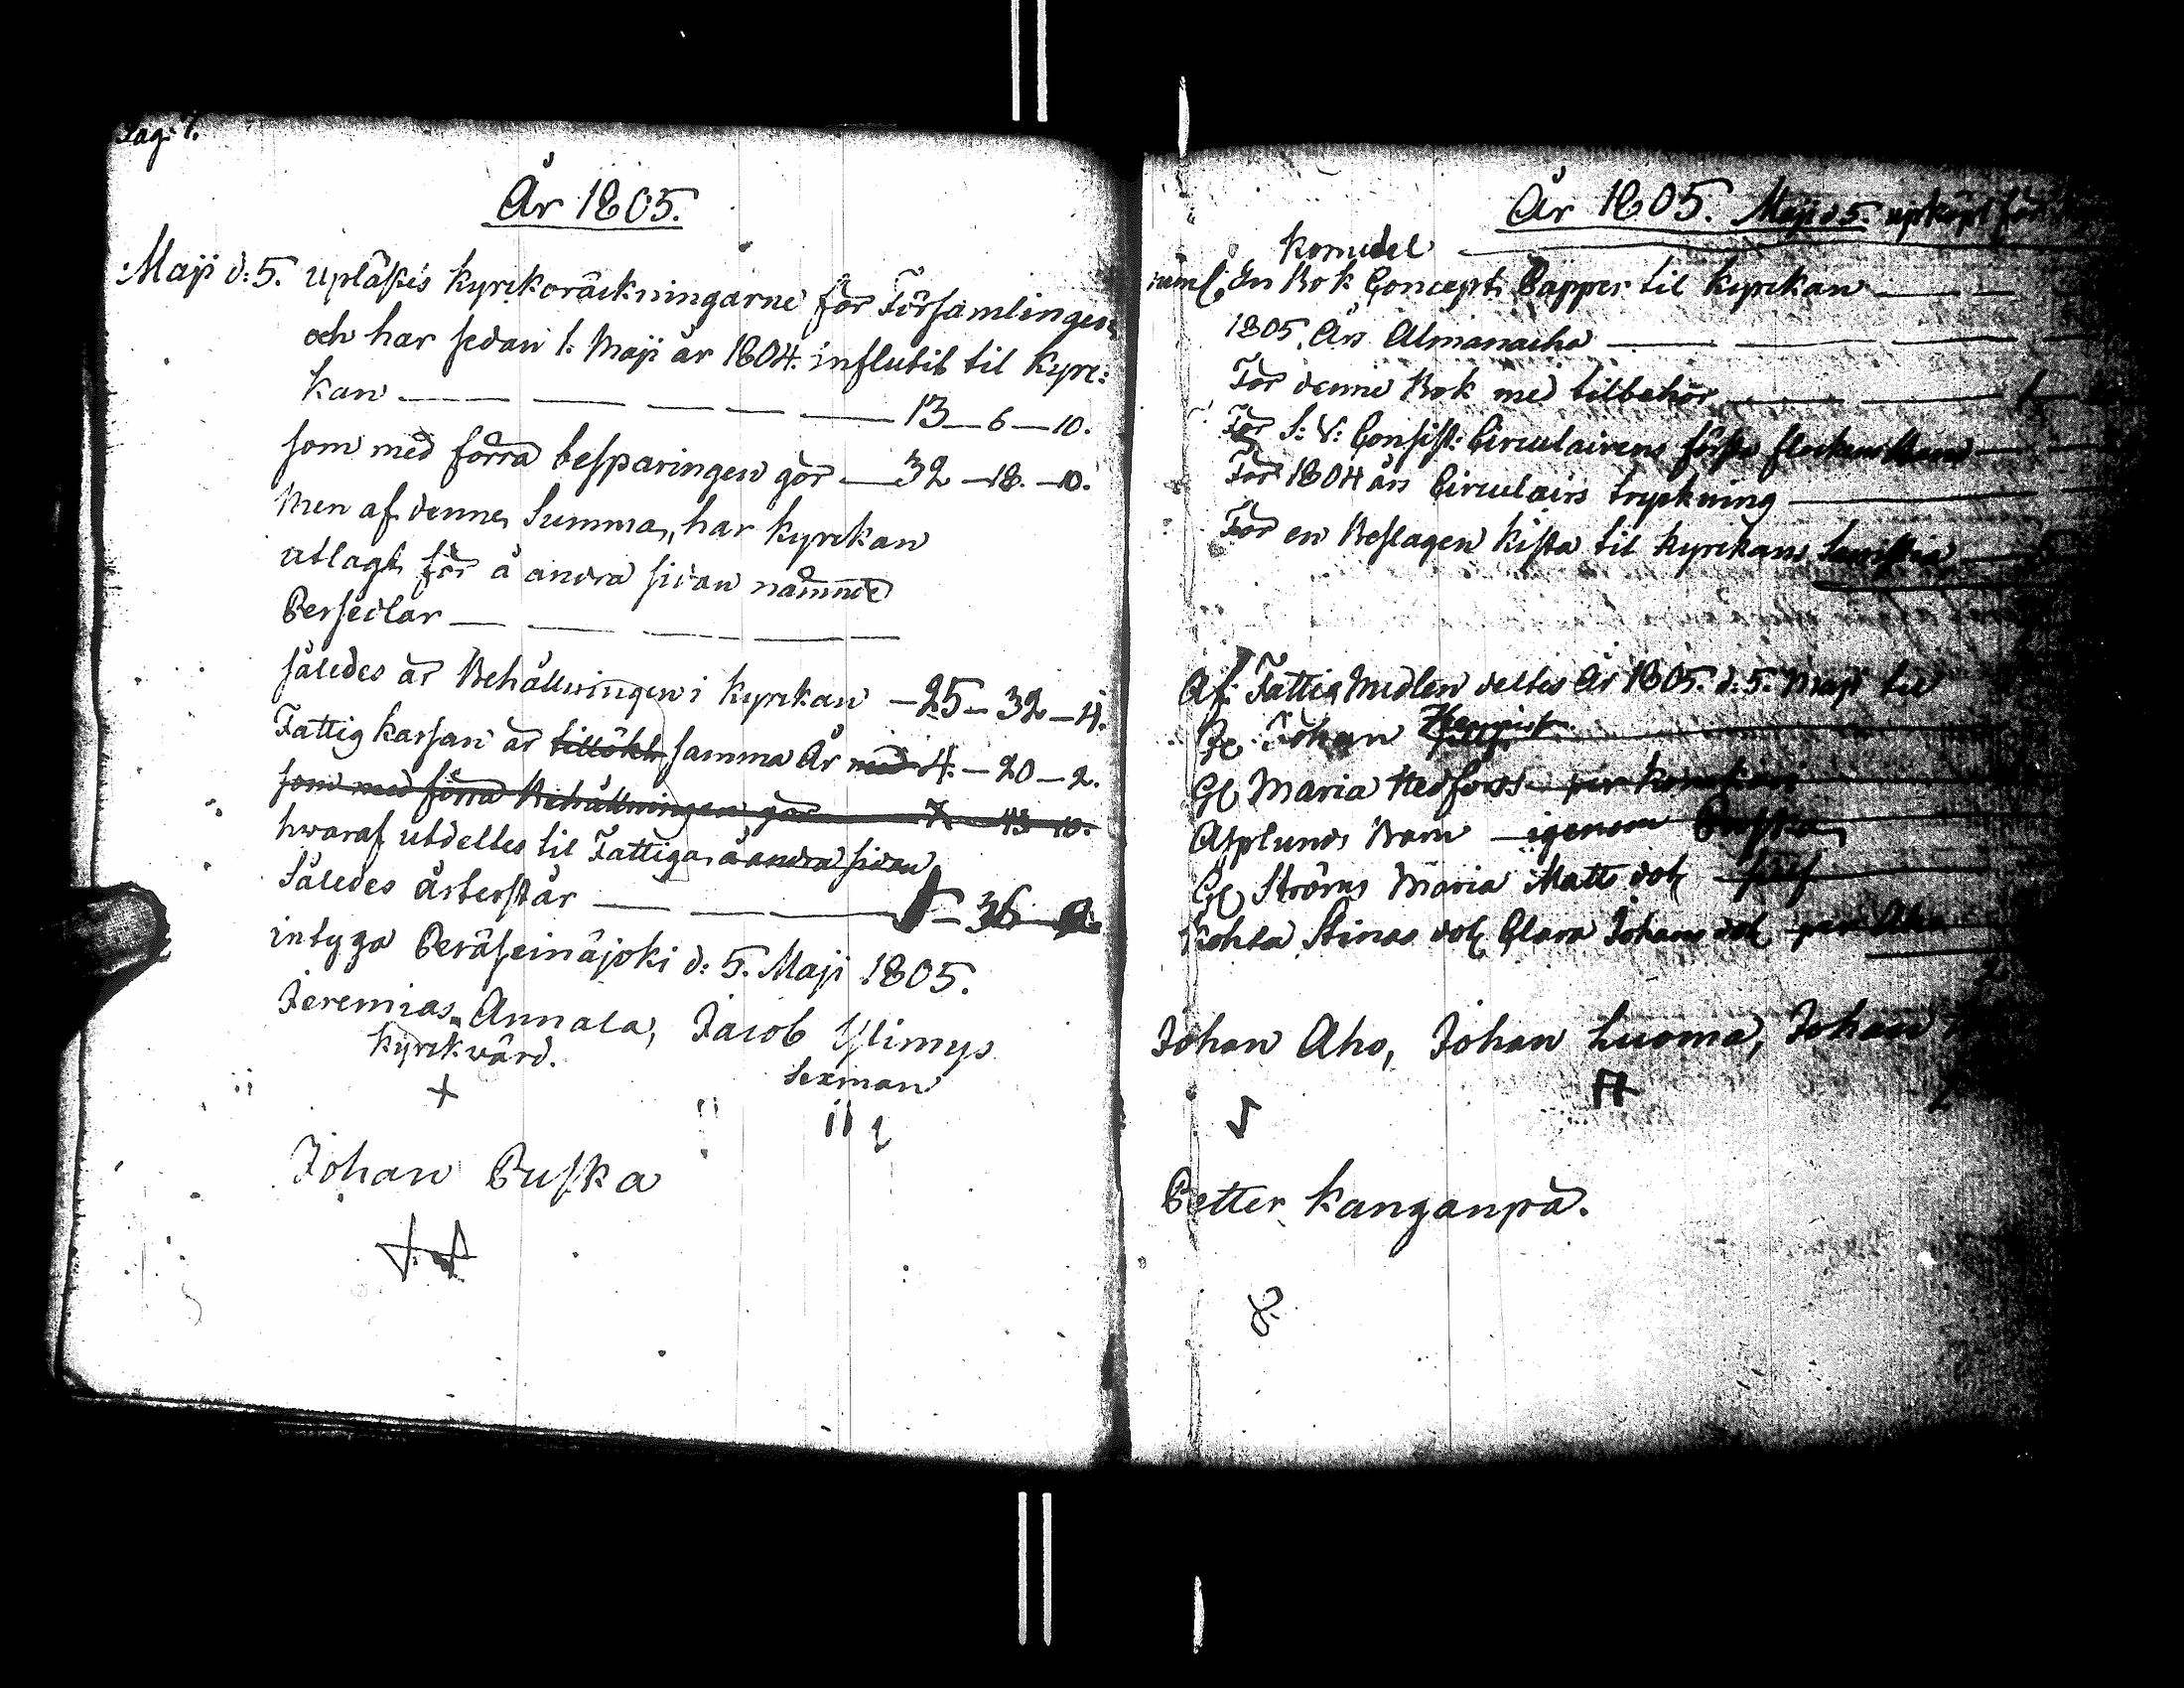 Pag. 7.
År 1805.
Maji d: 5. upläses kyrckoräckningarne för Församlingen
och har sedan 1. Maji år 1804. influtit til kyrc:
kan — 13 — 6 — 10.
som med förra besparingen gör — 32 — 18. — 10.
Men af denne Summa, har kyrckan
utlagt för å andra sidan nämnde
Persedlar —
således är Behållningen i kyrckan — 25 — 32 — 4.
Fattig kassan är tillökt samma År med 4. — 20 — 2.
som med förra Behållningen gör 7. — 43 — 10.
hwaraf utdeltes til Fattiga å andra sidan
Således återstår — 36
intyga Peräseinäjoki d: 5. Maji 1805.
Jeremias Annala, Jacob Ylimys
kyrckwärd. Sexman
Johan Puska
År 1805. Maji d 5. upköpt för
kornedel
näml. En Bok Concept Papper til kyrckan —
1805. Års Almanacka —
För denne Bok med tilbehör — 1
För S: V: Consist: Circulairens första
För 1804 års Circulairs tryckning —
För en Beslagen kista til kyrckans Sacristia —
Af Fattig Medlen deltes År 1805. d: 5. Maji til
Johan
Maria Hedforss per
Asplunds Barn — igenom Puska
Ströms Maria Matts dot. sielf
Kohta Stinas dot. Clara Johans dot. per Aho
Johan Aho, Johan Luoma, Johan
Petter Kanganpä.